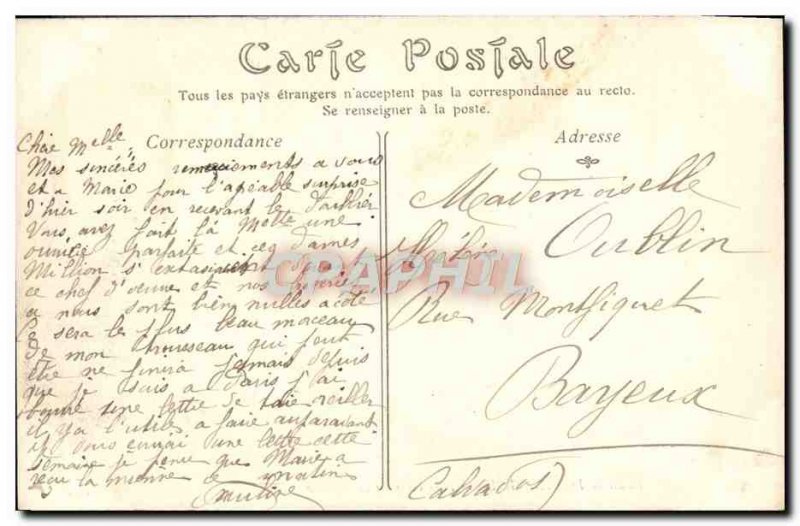 Carte Postale
Tous les pays étrangers n'acceptent pas la correspondance au recto.
Se renseigner à la poste.
Correspondance
Adresse
Chère Melle,
Mes sincères remerciements a vous
et a Marie pour l'agéable surprise
d'hier soir en recevant le tablier
Vous avez fait là Melle une
parfaite et ces dames
Million s'extasient
ce chef d'œuvre et nos
a nous sont bien nulles a côté
Ce sera le plus beau morceau
de mon trousseau qui peut
être ne finira jamais depuis
que je suis a Paris j'ai
une de taie
il y a l'utile a faire auparavant
je vous envoi une lettre cette
semaine je pense que Marie a
reçu la mienne ce matin
Mademoiselle
Oublin
Rue Montfiquet
Bayeux
Calvados)
CPAPHIL